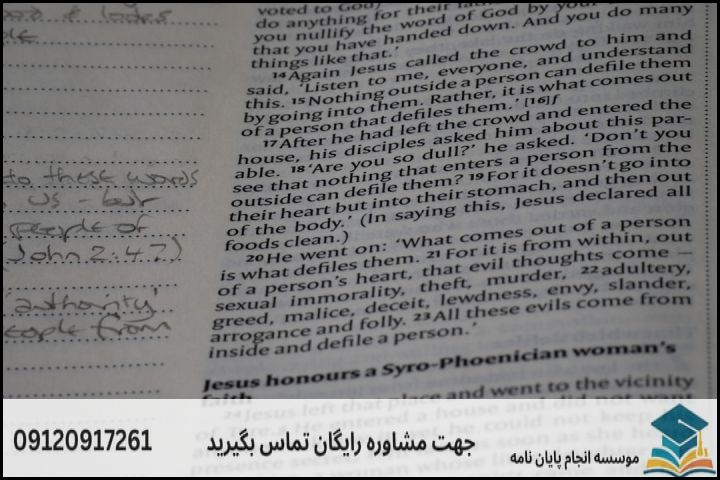 do anything for their
you nullify the word of God by your
that you have handed down. And you do many
things like that.'
14Again Jesus called the crowd to him and
said, 'Listen to me, everyone, and understand
this. 15Nothing outside a person can defile them
by going into them. Rather, it is what comes out
of a person that defiles them.' [16]f
17After he had left the crowd and entered the
house, his disciples asked him about this par-
able. 18'Are you so dull?' he asked. 'Don't you
see that nothing that enters a person from the
outside can defile them? 19For it doesn't go into
their heart but into their stomach, and then out
of the body.' (In saying this, Jesus declared all
foods clean.)
20He went on: 'What comes out of a person
is what defiles them. 21For it is from within, out
of a person's heart, that evil thoughts come –
sexual immorality, theft, murder, 22adultery,
greed, malice, deceit, lewdness, envy, slander,
arrogance and folly. 23All these evils come from
inside and defile a person.'
Jesus honours a Syro-Phoenician woman's
faith
24Jesus left that place and went to the vicinity
of Tyre. He entered a house and did not want
to these words
us - but
people of
(John 2:47)
'authority'
people from
09120917261
جهت مشاوره رایگان تماس بگیرید
موسسه انجام پایان نامه